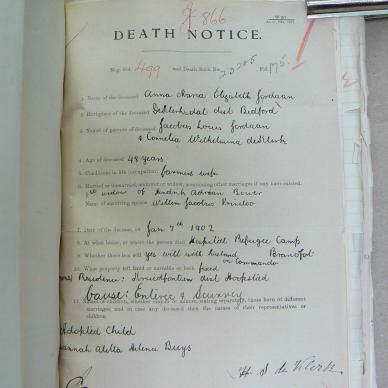 866
DEATH NOTICE.
Reg. Fol. 499 and Death Book No. 23285 Fol. 175
1. Name of the deceased Anna Maria Elizabeth Jordaan
2. Birthplace of the deceased deKlerksdal dist Bedford
3. Names of parents of deceased Jacobus Louis Jordaan
& Cornelia Wilhelmina deKlerk
4. Age of deceased 48 years
5. Conditions in life (occupation) farmers wife
6. Married or unmarried, widower or widow, mentioning other marriages if any have existed.
1st widow of Hendrik Adriaan Bower
Name of surviving spouse Willem Jacobus Prinsloo
7. Date of the decease, on Jan 7th 1902
8. At what house, or where the person died Hospital Refugee Camp
9. Whether there is a will yes will with husband Brandfort
on Commando
10. What property left fixed or movable or both fixed
Residence: Kruidfontein dist Hoopstad
Cause: Enteric & Scurvy
11. Names of children, whether majors or minors, stating separately, those born of different
marriages, and in case any deceased then the names of their representatives or
children.
Adopted Child
Hannah Aletta Helena Buys
H. S. de Klerk